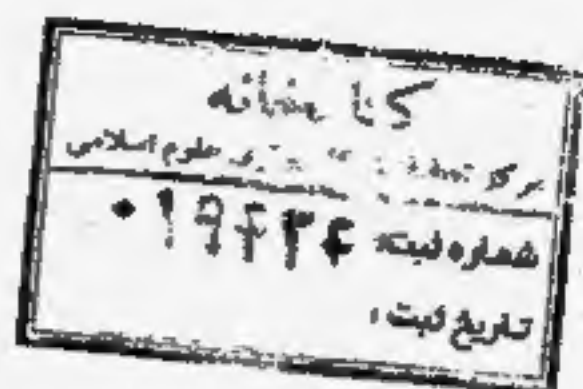 کتابخانه
مرکز تحقیقات کامپیوتری علوم اسلامی
شماره ثبت: ۰۱۹۴۳۴
تاریخ ثبت: